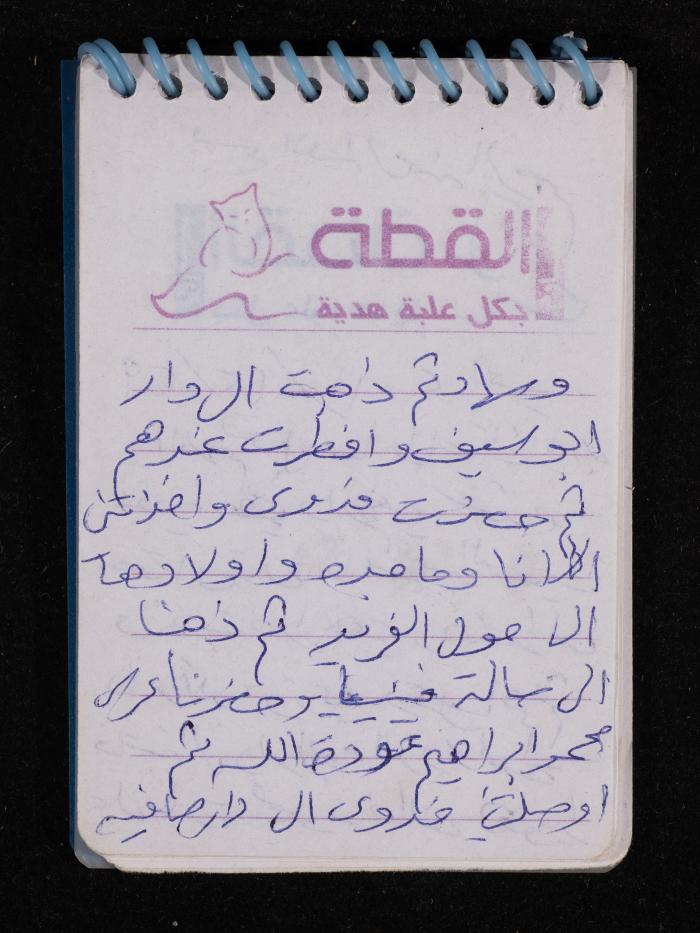 القطة
بكل علبة هدية
وسلا وثم ذهبت الى دار
ابو سيف وافطرت عندهم
ثم حضرت فدوى واخذتني
انا وماجده واولادها
الى مول الفريد ثم ذهبنا
الى صالة وحضرنا عرس
محمد ابراهيم عودة الله ثم
اوصلتني فدوى الى دار صافيه